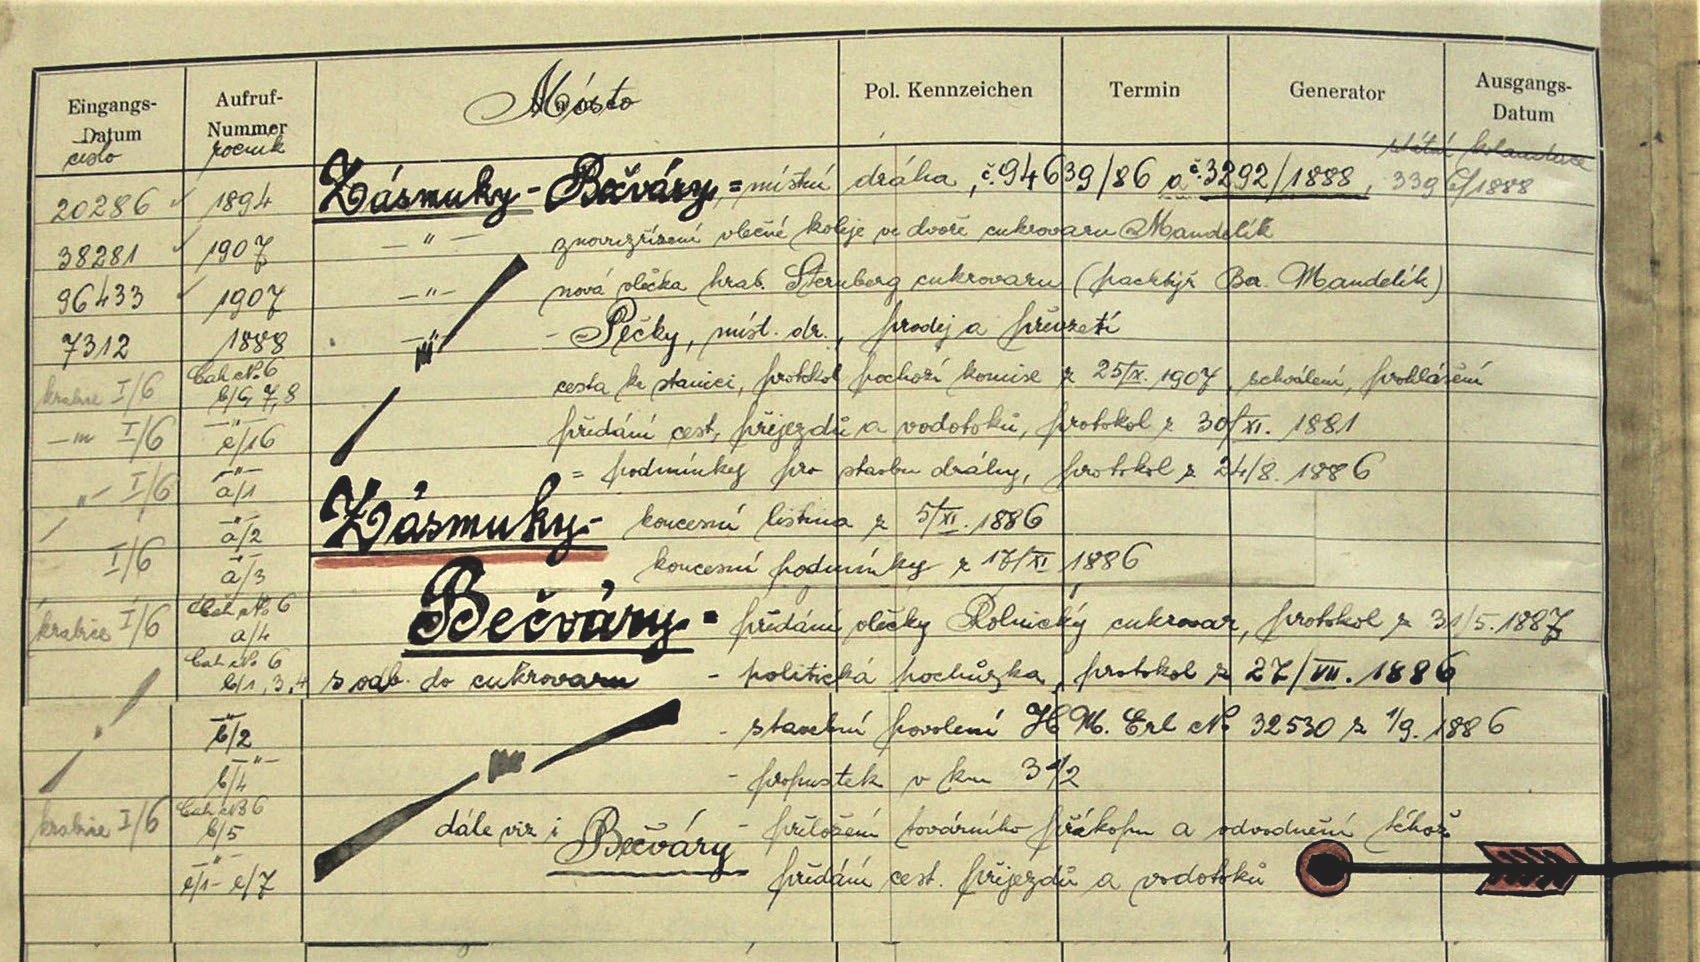 Eingangs-Datum
číslo
Aufruf-Nummer
ročník
Místo
Pol. Kennzeichen
Termin
Generator
Ausgangs-Datum
státní
20286 1894 Zásmuky - Bečváry, = místní dráha, č. 94639/86 a č. 3292/1888, 339 /1888
38281 1907 — " — znovuzřízení vlečné koleje ve dvoře cukrovaru Mandelík
96433 1907 — " — nová vlečka hrab. Sternberg cukrovaru (pachtýř Mandelík)
7312 1888 " - Pečky, míst. dr., prodej a převzetí
krabice I/6 No 6 b/6, 7, 8 cesta ke stanici, protokol pochozí komise z 25/IX. 1907, schválení, prohlášení
— " I/6 — " — e/16 předání cest, příjezdů a vodotoků, protokol z 30/XI. 1881
— " — I/6 — " — a/1 = podmínky pro stavbu dráhy, protokol z 24/8. 1886
— " — a/2 Zásmuky - koncesní listina z 5/XI. 1886
I/6 — " — a/3 koncesní podmínky z 17/XI 1886
krabice I/6 No 6 a/4 Bečváry = předání vlečky Rolnický cukrovar, protokol z 31/5. 1887
No 6 b/1, 3, 4 s odb. do cukrovaru - politická pochůzka, protokol z 27/VII. 1886
" b/2 - stavební povolení H. M. Erl No 32530 z 1/9. 1886
b/4 — " — - propustek v km 3 1/2
krabice I/6 No 6 b/5 dále viz i Bečváry - přeložení továrního příkopu a odvodnění téhož
— " — e/1 - e/7 předání cest. příjezdů a vodotoků